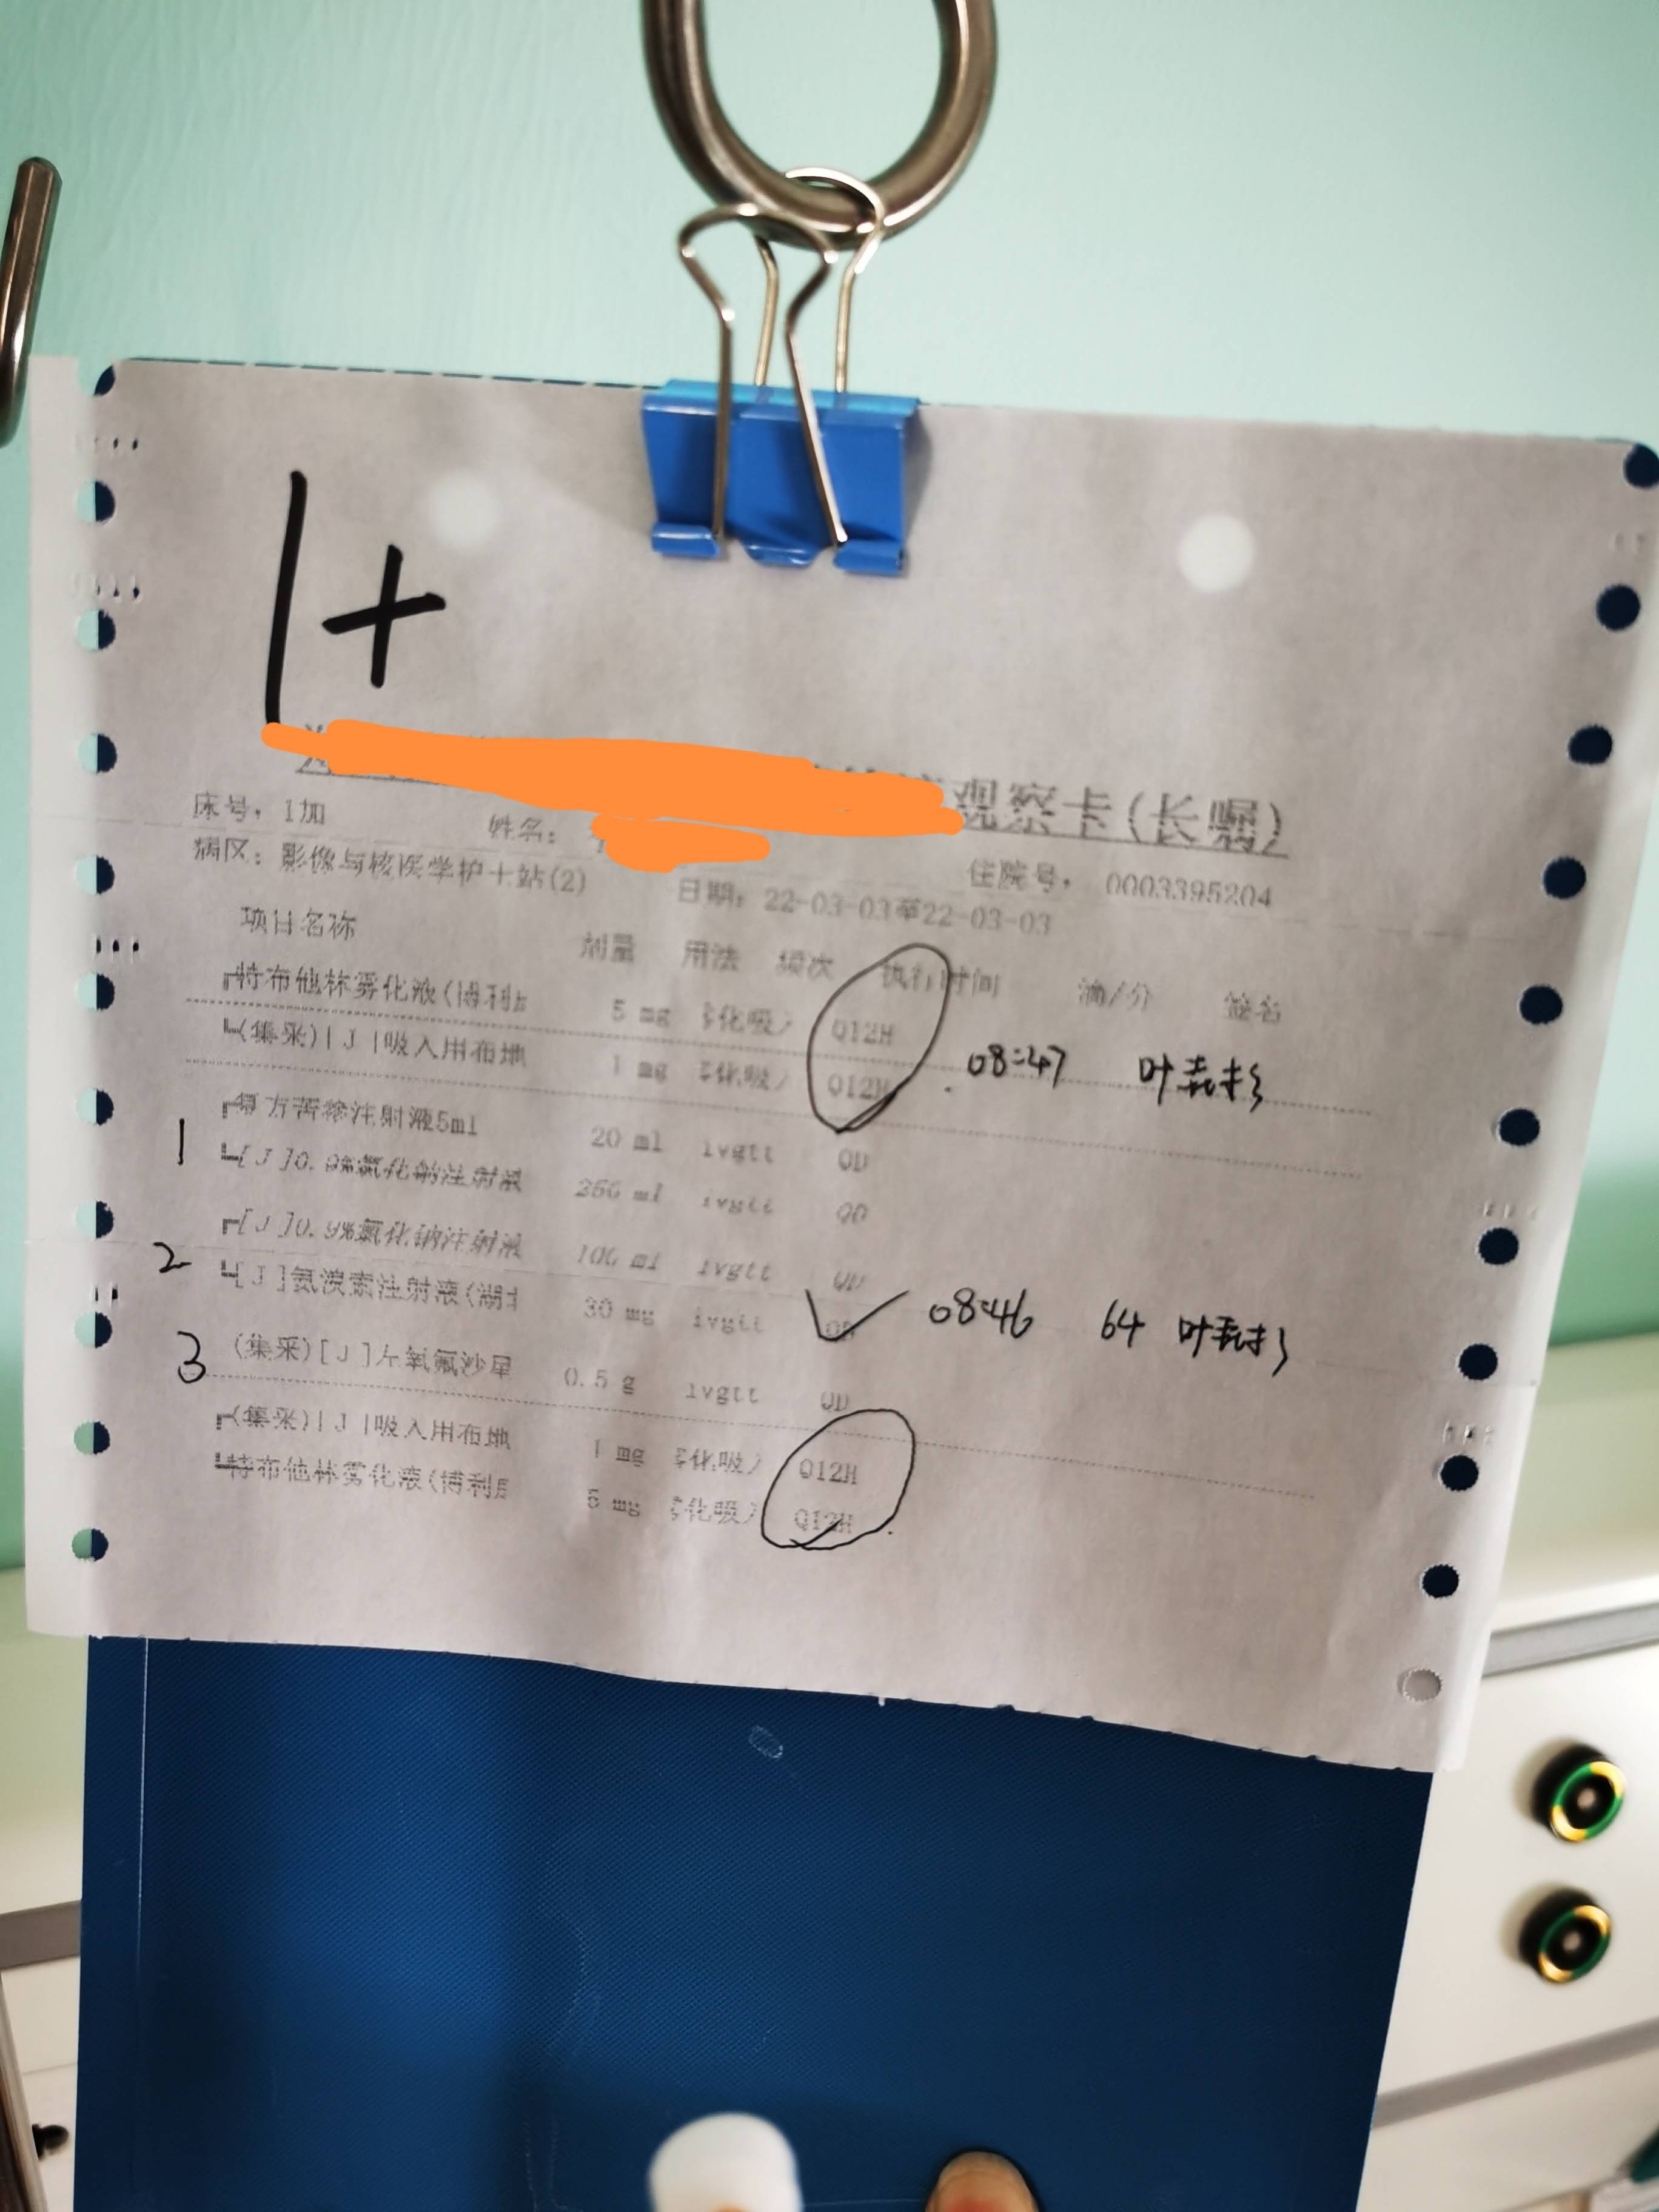 1+
观察卡(长嘱)
床号: 1加 姓名: 住院号: 0003395204
病区: 影像与核医学护士站(2) 日期: 22-03-03至22-03-03
项目名称 剂量 用法 频次 执行时间 滴/分 签名
┌特布他林雾化液(博利 5 mg 化吸) Q12H
└(集采)[J]吸入用布地 1 mg 化吸) Q12H 08:47
1
┌复方苦参注射液5ml 20 ml ivgtt QD
└[J]0.9%氯化钠注射液 250 ml ivgtt QD
2
┌[J]0.9%氯化钠注射液 100 ml ivgtt QD
└[J]氨溴索注射液(湖北 30 mg ivgtt QD 08:46 64
3 (集采)[J]左氧氟沙星 0.5 g ivgtt QD
┌(集采)[J]吸入用布地 1 mg 化吸) Q12H
└特布他林雾化液(博利 5 mg 化吸) Q12H